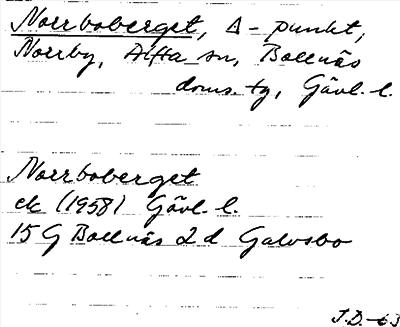 Norrboberget, Δ-punkt,
Norrby, Alfta sn, Bollnäs
doms. tg, Gävl. l.
Norrboberget
ek (1958) Gävl. l.
15 G Bollnäs 2 d Galvsbo
J.D.-63